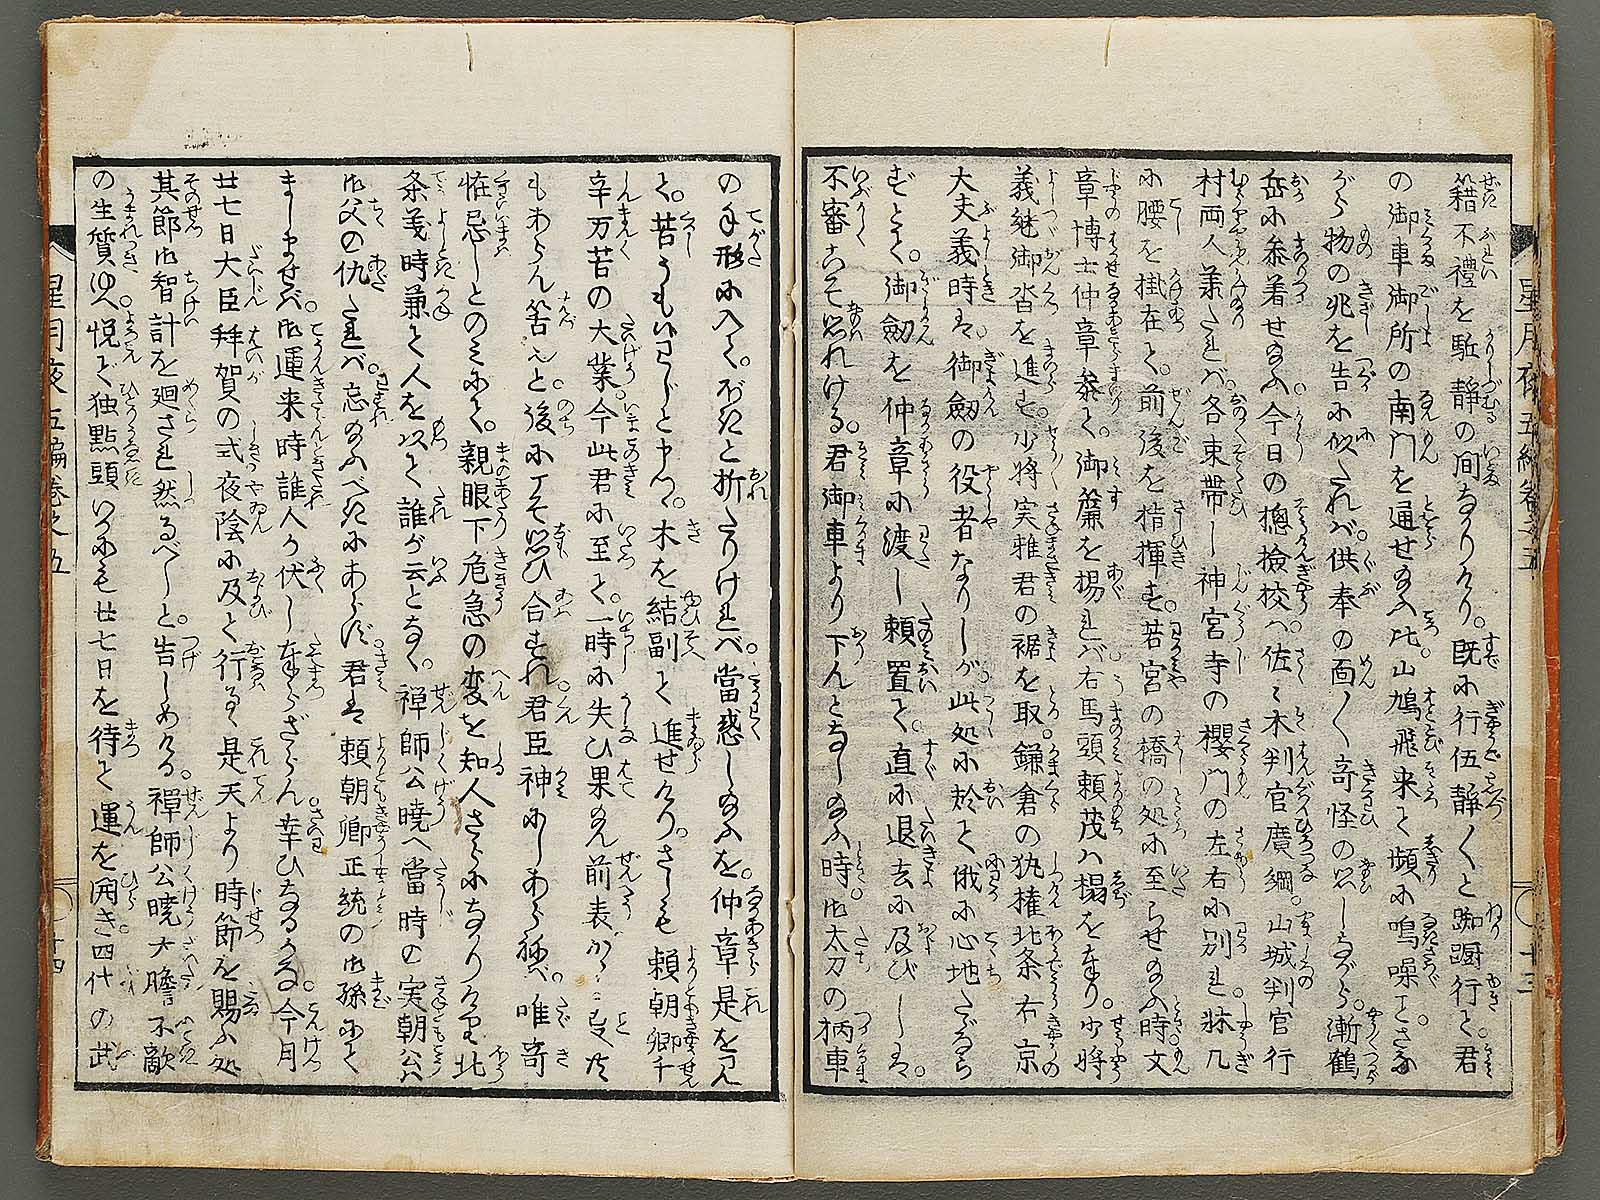 籍不禮を駈静の間なりけり。既に行伍静〱と踟蹰行て君
の御車御所の南門を通せ給ふ此。山鳩飛来て頻に鳴噪ことさな
がら物の兆を告に似たれバ。供奉の面〱奇怪の思しながら。漸鶴
岳に参着せ給ふ今日の摠撿校ハ。佐〻木判官廣綱。山城判官行
村両人兼たれバ。各束帯し神宮寺の櫻門の左右に別れ。牀几
に腰を掛在て。前後を指揮す。若宮の橋の処に至らせ給ふ時。文
章博士仲章参て。御簾を揚れバ右馬頭頼茂ハ榻を奉り。少将
義継御沓を進す。少将実雅君の裾を取。鎌倉の執権北条右京
大夫義時は。御劔の役者なりしが。此処に於て俄に心地たがふ
ずとて。御劔を仲章に渡し頼置て。直に退去に及びしは。
不審こそ思れける。君御車より下んとなし給ふ時。御太刀の柄車
の手形に入て。ぽきと折たりけれバ。當惑し給ふを。仲章是を見
て。苦うもいらじと申て。木を結副て進せけり。さしも頼朝卿千
辛万苦の大業。今此君に至て。一時に失ひ果給ん前表か
もあらん筈也と。後にこそ思ひ合すれ。君臣神にしあらねバ。唯寄
怪忌しとのミにて。親眼下危急の変を知人さらになりけり。北
条義時兼て人を以て誰が云となく。禅師公暁へ當時の実朝公ハ
御父の仇たれバ。忘給ふべきにあらず。君は頼朝卿正統の御孫にて
ましませバ。御運来時誰人か伏し奉らざらん。幸ひなるかな今月
廿七日大臣拜賀の式夜陰に及て行る。是天より時節を賜ふ処
其節御智計を廻され然るべしと。告しめける。禅師公暁大膽不敵
の生質ゆへ。悦で独點頭いかにも廿七日を待て運を開き。四代の武
星月夜五編巻之五
十三
星月夜五編巻之五
十四